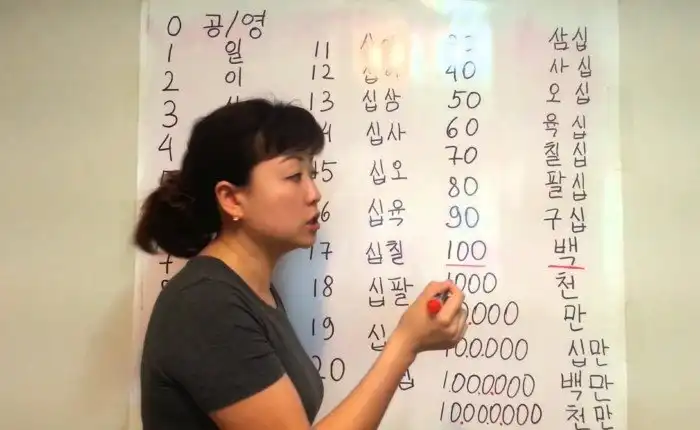 0 공/영
1 일
2 이
3
4
11
12 십이
13 십삼
십사
15 십오
십육
17 십칠
18 십팔
19 십
20
삼십
40 사십
50 오십
60 육십
70 칠십
80 팔십
90 구십
100 백
1000 천
만
십만
1.000.000 백만
10.000.000 천만